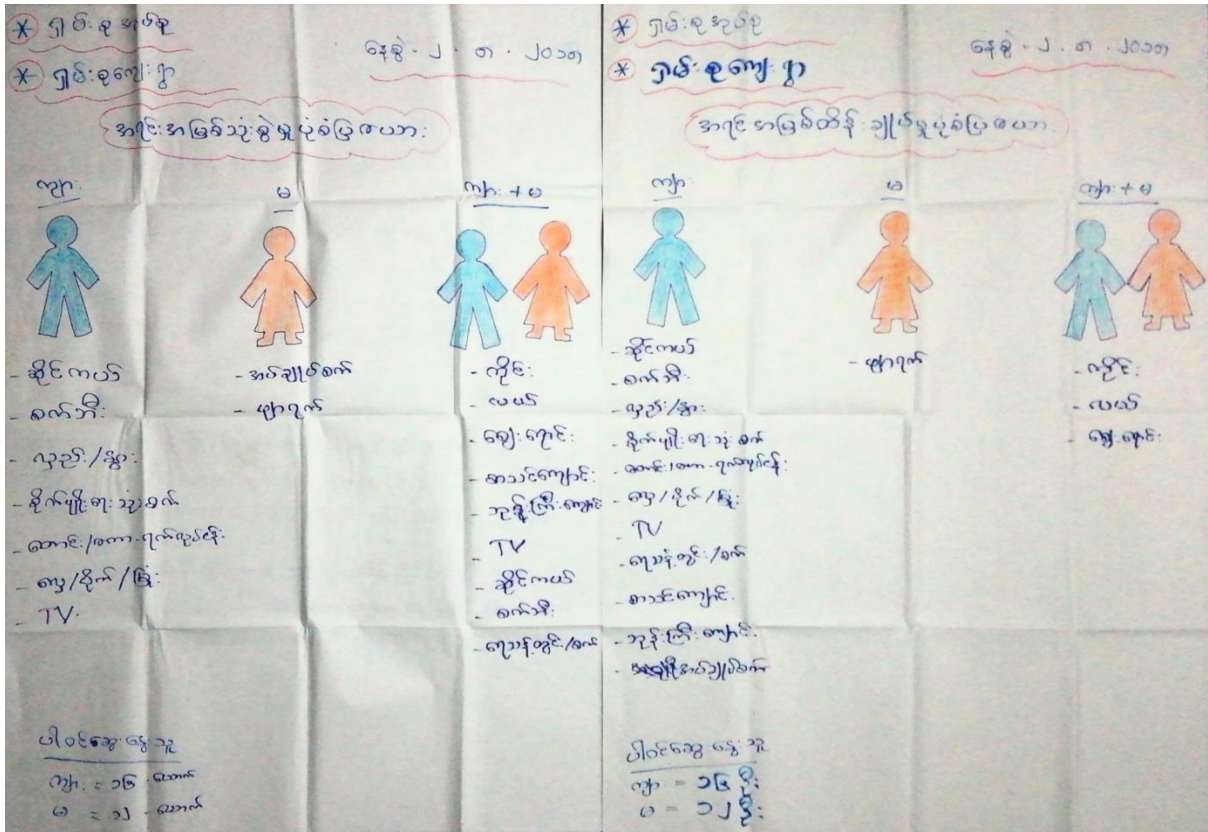 * ရှမ်းစုအုပ်စု
* ရှမ်းစုကျေးရွာ
နေ့စွဲ - ၂ . ၈ . ၂၀၁၈
အရင်းအမြစ်သုံးစွဲမှုပုံစံပြဇယား
ကျား
မ
ကျား + မ
- ဆိုင်ကယ်
- စက်ဘီး
- လှည်း/နွား
- စိုက်ပျိုးရေးသုံးစက်
- တောင်း/စကာ ရက်လုပ်ငန်း
- လှေ/စိုက်/ခြံ
- TV
- အပ်ချုပ်စက်
- ဖျာရက်
- ကိုင်း
- လယ်
- ဈေးရောင်း
- စာသင်ကျောင်း
- ဘုန်းကြီးကျောင်း
- TV
- ဆိုင်ကယ်
- စက်ဘီး
- ရေသန့်တွင်း/စက်
ပါဝင်ဆွေးနွေးသူ
ကျား = ၁၆ ယောက်
မ = ၁၂ ယောက်
* ရှမ်းစုအုပ်စု
* ရှမ်းစုကျေးရွာ
နေ့စွဲ - ၂ . ၈ . ၂၀၁၈
အရင်းအမြစ်ထိန်းချုပ်မှုပုံစံပြဇယား
ကျား
မ
ကျား + မ
- ဆိုင်ကယ်
- စက်ဘီး
- လှည်း/နွား
- စိုက်ပျိုးရေးသုံးစက်
- တောင်း/စကာ ရက်လုပ်ငန်း
- လှေ/စိုက်/ခြံ
- TV
- ရေသန့်တွင်း/စက်
- စာသင်ကျောင်း
- ဘုန်းကြီးကျောင်း
- အပ်ချုပ်စက်
- ဖျာရက်
- ကိုင်း
- လယ်
- ဈေးရောင်း
ပါဝင်ဆွေးနွေးသူ
ကျား = ၁၆ ဦး
မ = ၁၂ ဦး